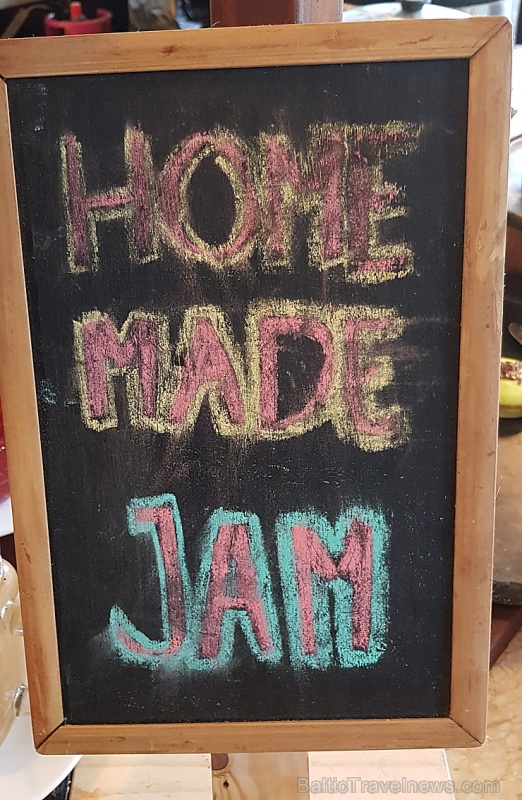 HOME
MADE
JAM
BalticTravelnews.com